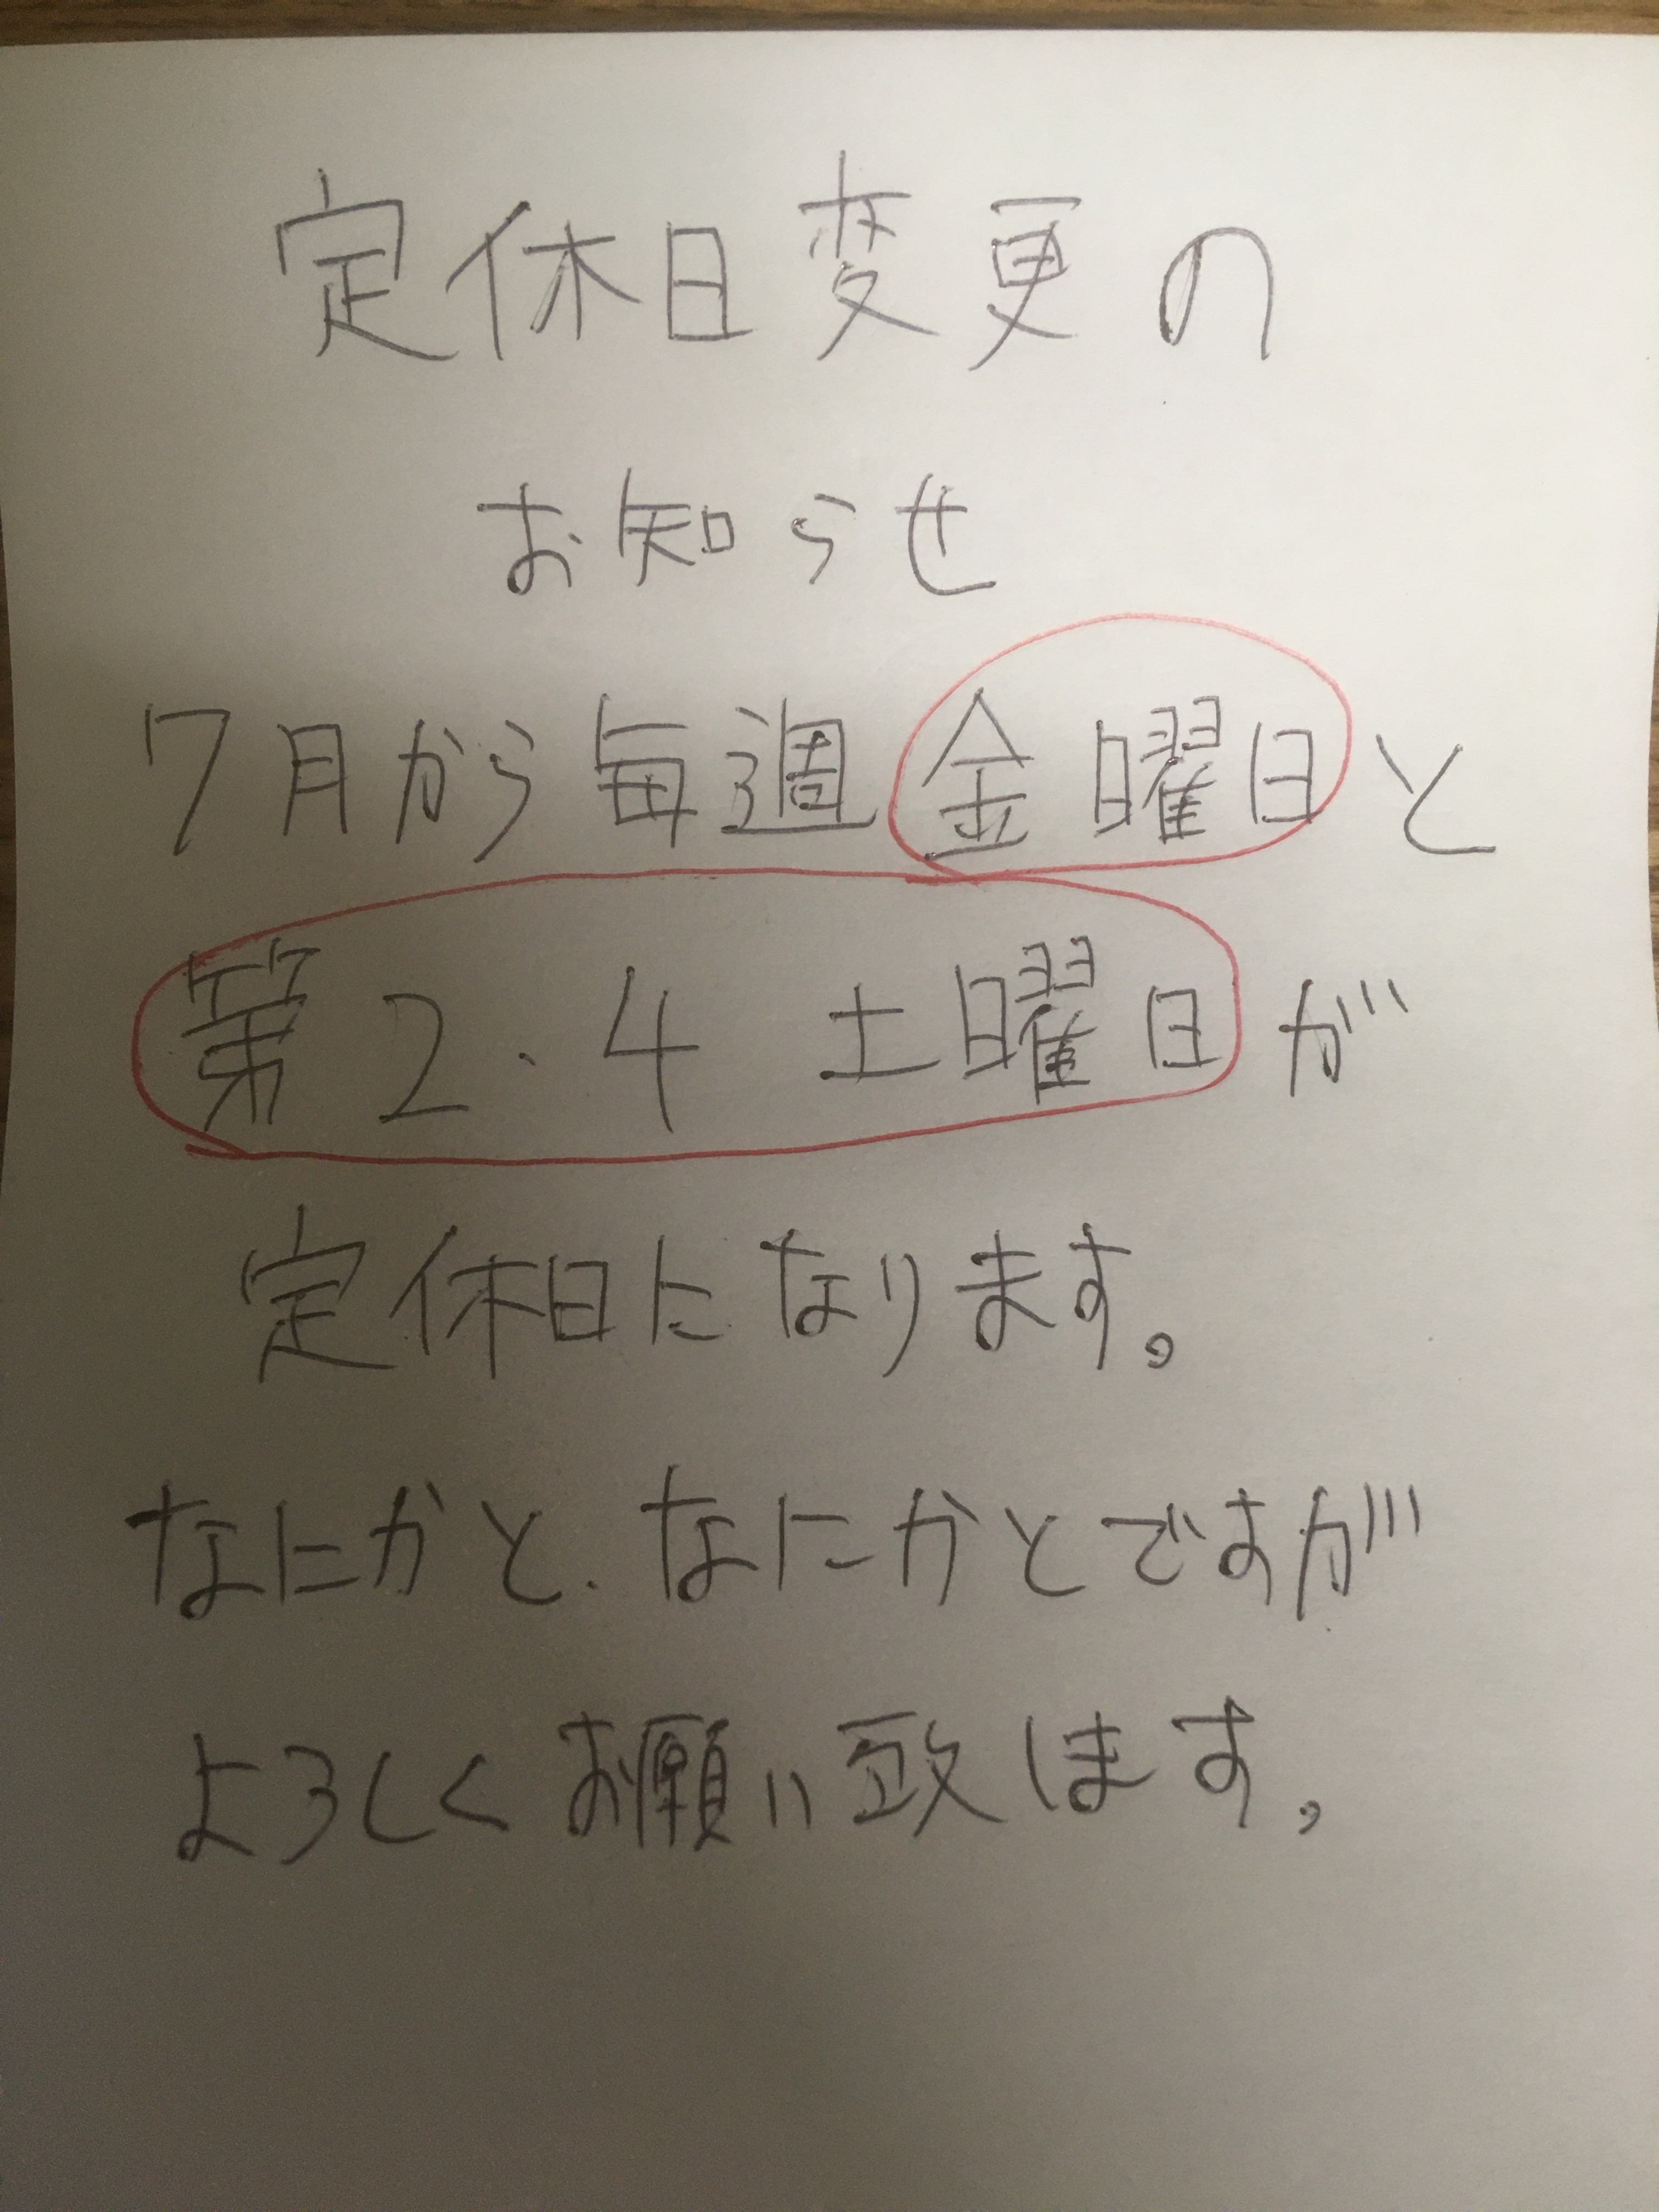 定休日変更の
お知らせ
7月から毎週金曜日と
第2.4 土曜日が
定休日になります。
なにかと.なにかとですが
よろしくお願い致します。